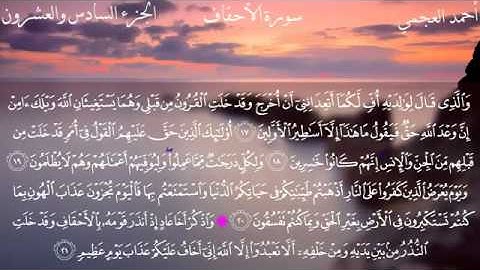 أحمد العجمي سورة الأحقاف الجزء السادس والعشرون
وَالَّذِى قَالَ لِوَٰلِدَيْهِ أُفٍّ لَّكُمَآ أَتَعِدَانِنِىٓ أَنْ أُخْرَجَ وَقَدْ خَلَتِ الْقُرُونُ مِن قَبْلِى وَهُمَا يَسْتَغِيثَانِ اللَّهَ وَيْلَكَ ءَامِنْ
إِنَّ وَعْدَ اللَّهِ حَقٌّ فَيَقُولُ مَا هَٰذَآ إِلَّآ أَسَٰطِيرُ الْأَوَّلِينَ ١٧ أُوْلَٰٓئِكَ الَّذِينَ حَقَّ عَلَيْهِمُ الْقَوْلُ فِىٓ أُمَمٍ قَدْ خَلَتْ مِن
قَبْلِهِم مِّنَ الْجِنِّ وَالْإِنسِ إِنَّهُمْ كَانُوا۟ خَٰسِرِينَ ١٨ وَلِكُلٍّ دَرَجَٰتٌ مِّمَّا عَمِلُوا۟ وَلِيُوَفِّيَهُمْ أَعْمَٰلَهُمْ وَهُمْ لَا يُظْلَمُونَ ١٩
وَيَوْمَ يُعْرَضُ الَّذِينَ كَفَرُوا۟ عَلَى النَّارِ أَذْهَبْتُمْ طَيِّبَٰتِكُمْ فِى حَيَاتِكُمُ الدُّنْيَا وَاسْتَمْتَعْتُم بِهَا فَالْيَوْمَ تُجْزَوْنَ عَذَابَ الْهُونِ بِمَا
كُنتُمْ تَسْتَكْبِرُونَ فِى الْأَرْضِ بِغَيْرِ الْحَقِّ وَبِمَا كُنتُمْ تَفْسُقُونَ ٢٠ وَاذْكُرْ أَخَا عَادٍ إِذْ أَنذَرَ قَوْمَهُۥ بِالْأَحْقَافِ وَقَدْ خَلَتِ
النُّذُرُ مِنۢ بَيْنِ يَدَيْهِ وَمِنْ خَلْفِهِۦٓ أَلَّا تَعْبُدُوٓا۟ إِلَّا اللَّهَ إِنِّىٓ أَخَافُ عَلَيْكُمْ عَذَابَ يَوْمٍ عَظِيمٍ ٢١